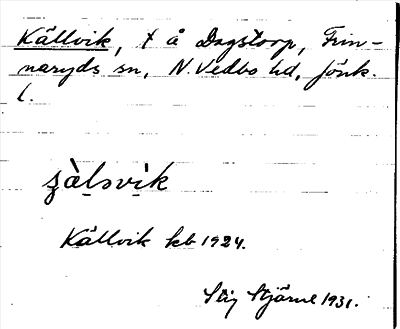 Källvik, t å Dagstorp, Frin-
naryds sn, N. Vedbo hd, Jönk.
l.
Källvik kb 1924.
Stig Stjärne 1931.